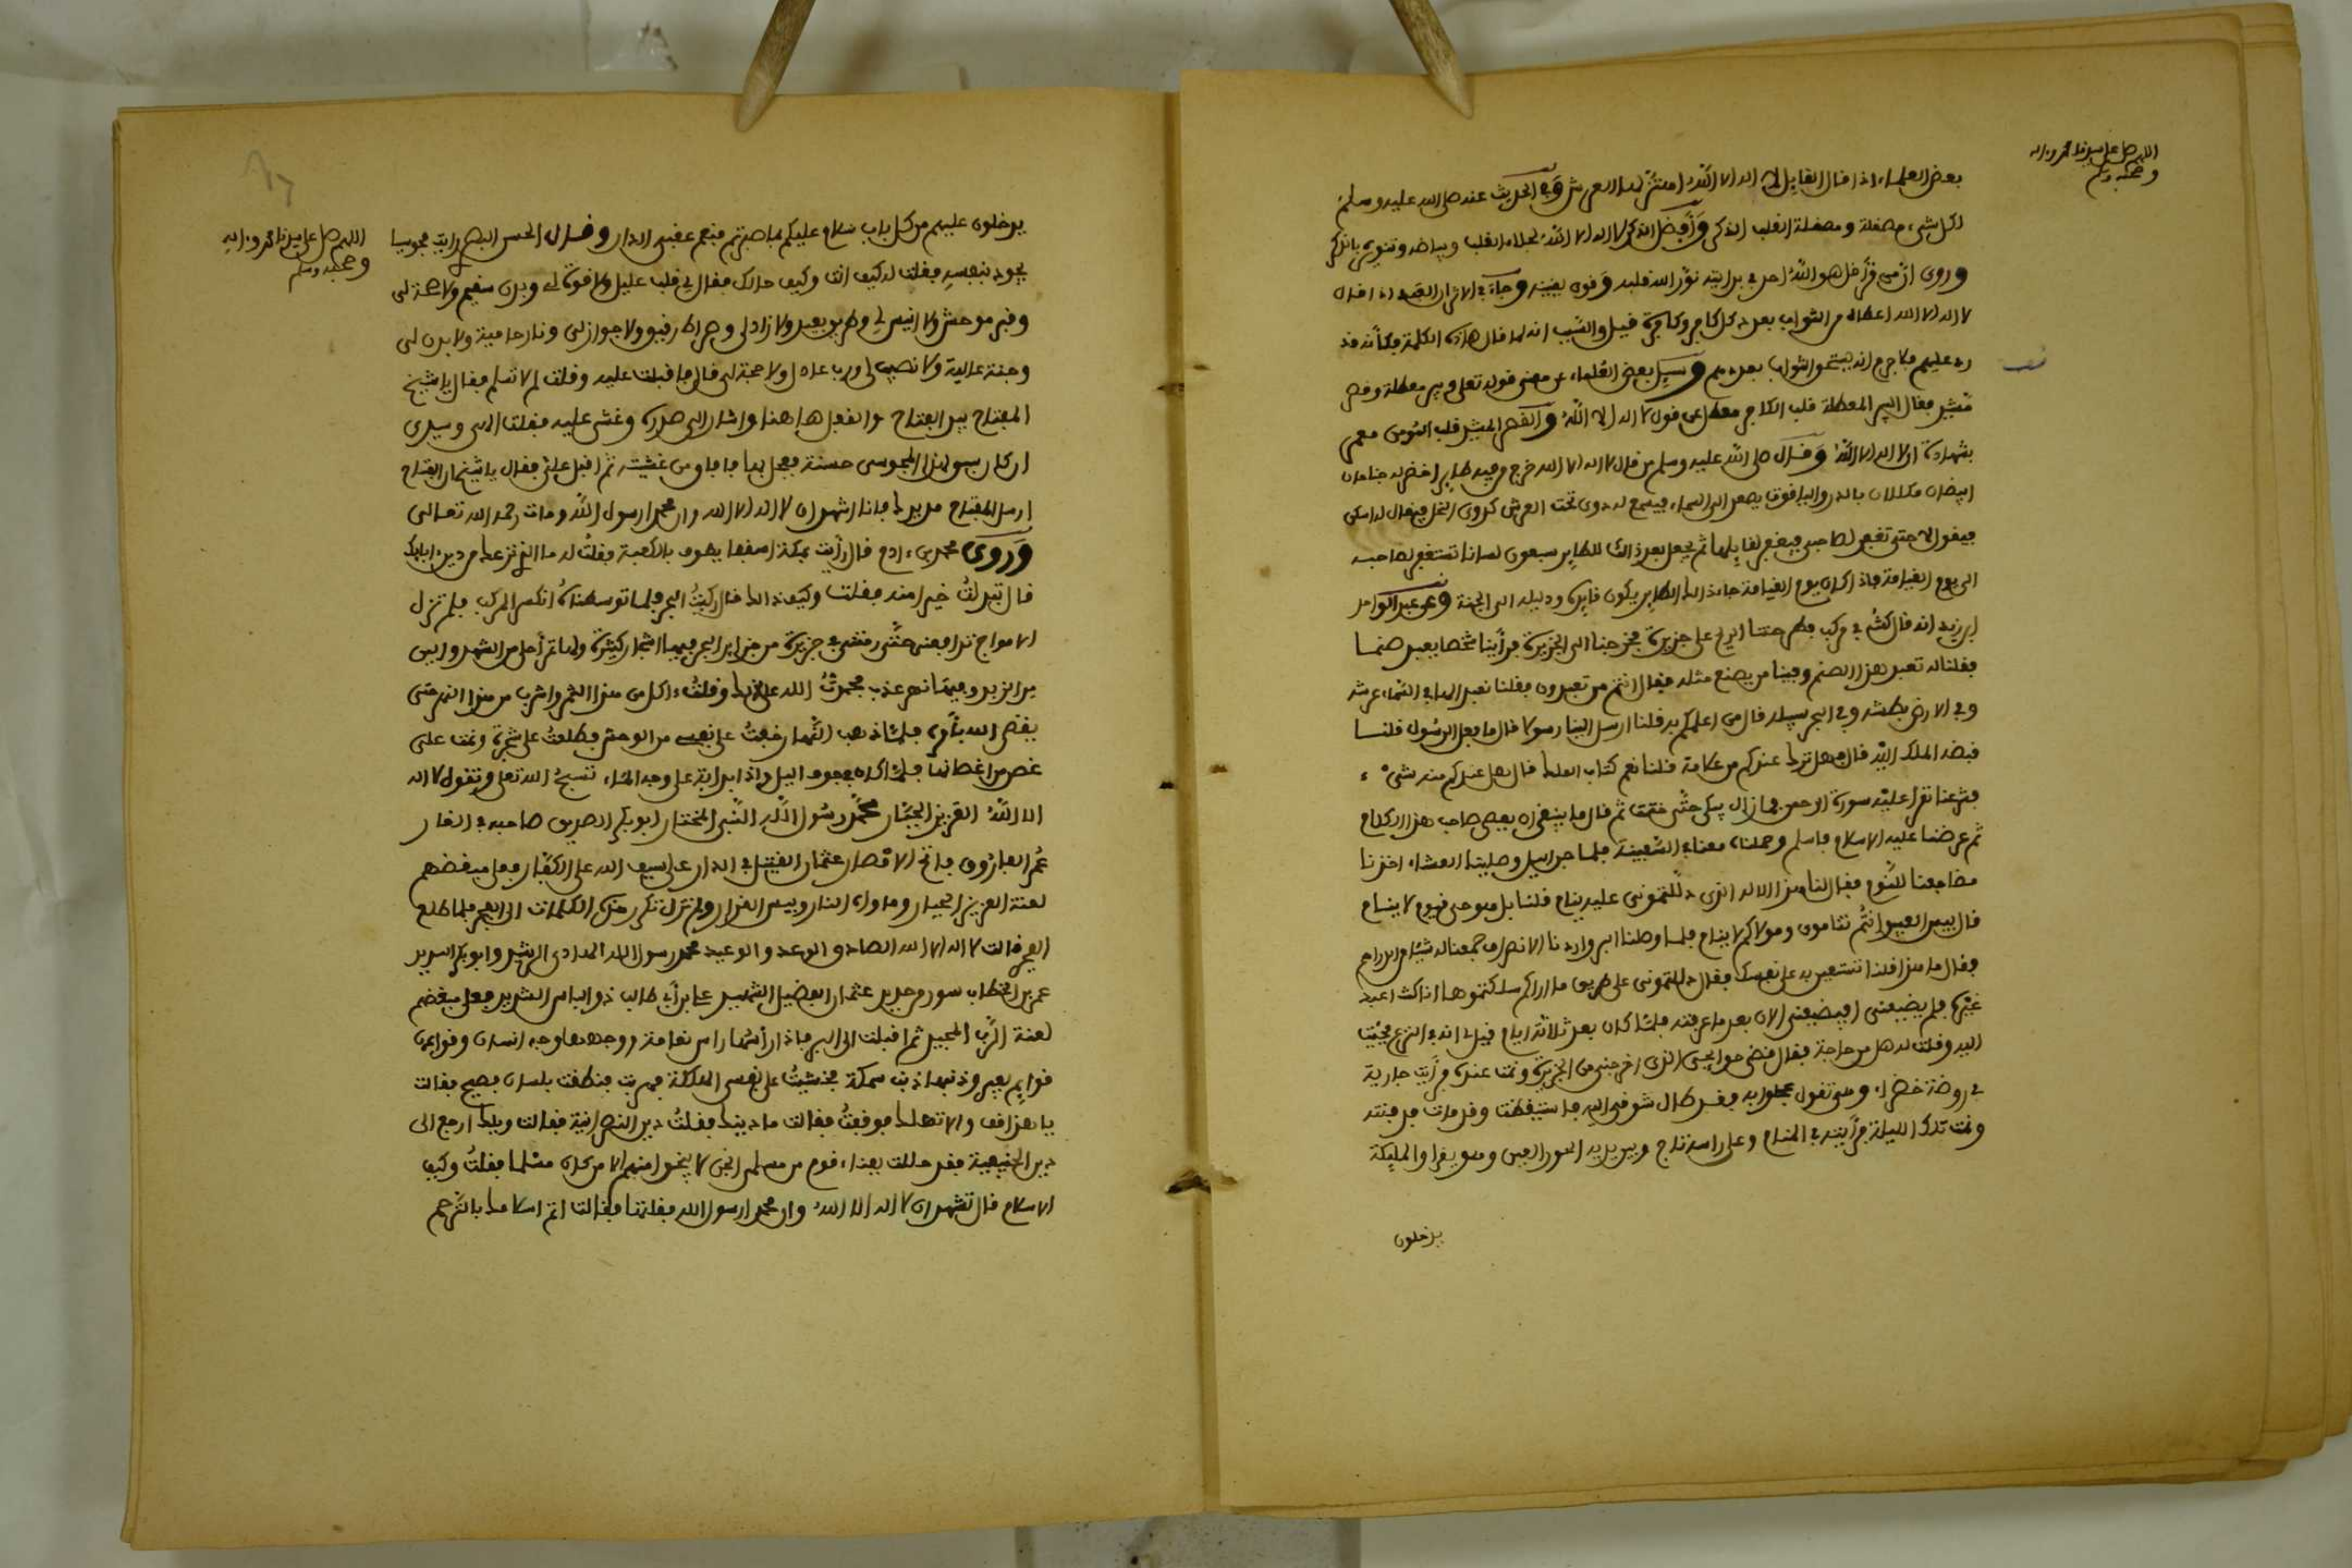 اللهم صل على سيدنا محمد وءاله
وصحبه وسلم
بعض العلماء اذا قال القايل لا اله الا الله اهتز لها العرش وفي الحديث عنه صلى الله عليه وسلم
لكل شيء مصقلة ومصقلة القلب الذكر وأفضل الذكر لا اله الا الله بجلاء القلب وبياضه وتنويره بالذكر
وروى ان من قرأ قل هو الله احد في بدايته نور الله قلبه وقوى يقينه وجاء في الاثر ان العبد اذا قال
لا اله الا الله اعطاه من الثواب بعدد كل كافر وكافرة قيل والسبب انه لما قال هاذه الكلمة فكأنه قد
رد عليهم فلا جرم انه يستحق الثواب بعددهم وسيل بعض العلماء عن معنى قوله تعلى وبير معطلة وقصر
مشيد فقال البير المعطلة قلب الكافر معطل عن قول لا اله الا الله والقصر المشيد قلب المومن معمر
بشهادة ان لا اله الا الله وقال صلى الله عليه وسلم من قال لا اله الا الله خرج من فيه طاير اخضر له جناحان
ابيضان مكللان بالدر والياقوت يصعد الى السماء فيسمع له دوي تحت العرش كدوي النحل فيقال له اسكن
فيقول لا حتى تغفر لصاحبي فيغفر لقايلها ثم يجعل بعد ذالك للطاير سبعون لسانا تستغفر لصاحبه
الى يوم القيامة فاذا كان يوم القيامة جاء ذالك الطاير يكون قايده ودليله الى الجنة وعن عبد الواحد
ابن زيد انه قال كنت في مركب فطرحتنا الريح على جزيرة فخرجنا الى الجزيرة فرأينا شخصا يعبد صنما
فقلنا له تعبد هذا الصنم وفينا من يصنع مثله فقال انتم من تعبدون فقلنا نعبد الها في السماء عرشه
وفي الارض بطشه وفي البحر سبيله قال من اعلمكم به قلنا ارسل الينا رسولا قال ما فعل الرسول قلنا
قبضه الملك اليه قال فهل ترك عندكم من علامة قلنا نعم كتاب الملك قال هل عندكم منه شيء
فشرعنا نقرأ عليه سورة الرحمن فما زال يبكي حتى ختمت ثم قال ما ينبغي ان يعصى صاحب هذا الكلام
ثم عرضنا عليه الاسلام فاسلم وحملناه معنا في السفينة فلما جن الليل وصلينا العشاء اخذنا
مضاجعنا للنوم فقال لنا هذا الاله الذي دللتموني عليه ينام قلنا بل هو حي قيوم لا ينام
قال بيس العبيد انتم تنامون ومولاكم لا ينام فلما وصلنا البر واردنا الانصراف جمعنا له شيئا من الدراهم
فقال ما هذا قلنا تستعين به على نفسك فقال دللتموني على طريق ما اراكم سلكتموها انا كنت اعبد
غيره فلم يضيعني افيضيعني الان بعد ما عرفته فلما كان بعد ثلاثة ايام قيل لي انه في النزع فجئت
اليه وقلت له هل من حاجة فقال قضى حوايجي الذي اخرجني من الجزيرة ونمت عنده فرأيت جارية
في روضة خضراء وهي تقول عجلوا به فقد طال شوقي اليه فاستيقظت وقد مات فدفنته
ونمت تلك الليلة فرأيته في المنام وعلى راسه تاج وبين يديه الحور العين وهو يقرا والمليكة
يدخلون
اللهم صل على سيدنا محمد وءاله
وصحبه وسلم
يدخلون عليهم من كل باب سلام عليكم بما صبرتم فنعم عقبى الدار وقال الحسن البصري رايت مجوسيا
يجود بنفسه فقلت له كيف انت وكيف حالك فقال لي قلب عليل ولا قوة لي وبدن سقيم ولا صحة لي
وقبر موحش ولا انيس لي وطريق بعيد ولا زاد لي وصراط رقيق ولا جواز لي ونار حامية ولا بدن لي
وجنة عالية ولا نصيب لي ورب عادل ولا حجة لي قال فاقبلت عليه وقلت لم لا تسلم فقال يا شيخ
المفتاح بيد الفتاح والقفل هاهنا واشار الى صدره وغشي عليه فقلت الاهي وسيدي
ان كان سبق لهذا المجوسي حسنة فعجل بها فافاق من غشيته ثم اقبل علي فقال يا شيخ ان الفتاح
ارسل المفتاح مد يدك فانا اشهد ان لا اله الا الله وان محمدا رسول الله ومات رحمه الله تعالى
وروى محمد بن ءادم قال رأيت بمكة اسقفا يطوف بالكعبة فقلت له ما الذي نزعك من دين ابايك
قال تبدلت خيرا منه فقلت وكيف ذالك قال ركبت البحر فلما توسطناه انكسر المركب فلم تزل
الامواج تدافعني حتى رمتني في جزيرة من جزاير البحر فيها اشجار كثيرة ولها ثمر احلى من الشهد والين
من الزبد وفيها نهر عذب فحمدت الله على ذالك وقلت ءاكل من هذا الثمر واشرب من هذا النهر حتى
يقضي الله بأمره فلما ذهب النهار خفت على نفسي من الوحش فطلعت على شجرة ونمت على
غصن من اغصانها فلما كان في جوف اليل واذا بدابة على وجه الماء تسبح الله تعلى وتقول لا اله
الا الله العزيز الجبار محمد رسول الله النبي المختار ابو بكر الصديق صاحبه في الغار
عمر الفاروق فاتح الامصار عثمان القتيل في الدار علي سيف الله على الكفار فعلى مبغضهم
لعنة العزيز الجبار وماواه النار وبيس القرار ولم تزل تكرر هذه الكلمات الى الفجر فلما طلع
الفجر قالت لا اله الا الله الصادق الوعد والوعيد محمد رسول الله الهادي الرشيد وابو بكر السديد
عمر بن الخطاب سور من حديد عثمان الفضيل الشهيد علي بن أبي طالب ذو الباس الشديد فعلى مبغضهم
لعنة الرب المجيد ثم اقبلت الى البر فاذا رأسها راس نعامة ووجهها وجه انسان وقوايمها
قوايم بعير وذنبها ذنب سمكة فخشيت على نفسي الهلكة فهربت فنطقت بلسان فصيح فقالت
يا هذا قف والا تهلك فوقفت فقالت ما دينك فقلت دين النصرانية فقالت ويلك ارجع الى
دين الحنيفية فقد حللت بفناء قوم من مسلمي الجن لا ينجوا منهم الا من كان مسلما فقلت وكيف
الاسلام قال تشهد ان لا اله الا الله وان محمدا رسول الله فقلتها فقالت اتم اسلامك بالترحم